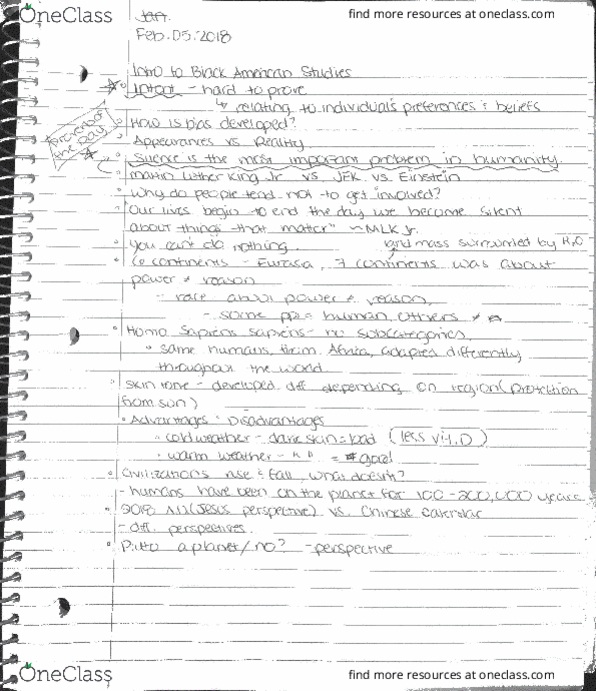 OneClass
find more resources at oneclass.com
Jan.
Feb.05.2018
Intro to Black American Studies
Intent - hard to prove
↳ relating to individuals preferences & beliefs
• How is bias developed?
Proverb of the Day
• Appearances vs Reality
• Silence is the most important problem in humanity.
• Martin Luther King Jr vs JFK vs. Einstein
• Why do people tend not to get involved?
• "Our lives begin to end the day we become silent
about things that matter" ~ MLK Jr.
• You can't do nothing.
land mass surrounded by H2O
• 6 continents - Eurasia, 7 continents was about
power & reason
- race about power & reason,
- some ppl = human, others ≠
• Homo Sapiens sapiens - no subcategories,
• same humans, from Africa, adapted differently
throughout the world
• Skin tone - developed diff depending on region (protection
from sun)
• Advantages & Disadvantages
• cold weather - dark skin = bad (less vit.D)
• warm weather - " " = good
• Civilizations rise & fall, what doesn't?
- humans have been on the planet for 100-200,000 years
• 2018 AD (Jesus perspective) vs. Chinese calendar
- diff. perspectives
• Pluto a planet/no? - perspective
OneClass
find more resources at oneclass.com